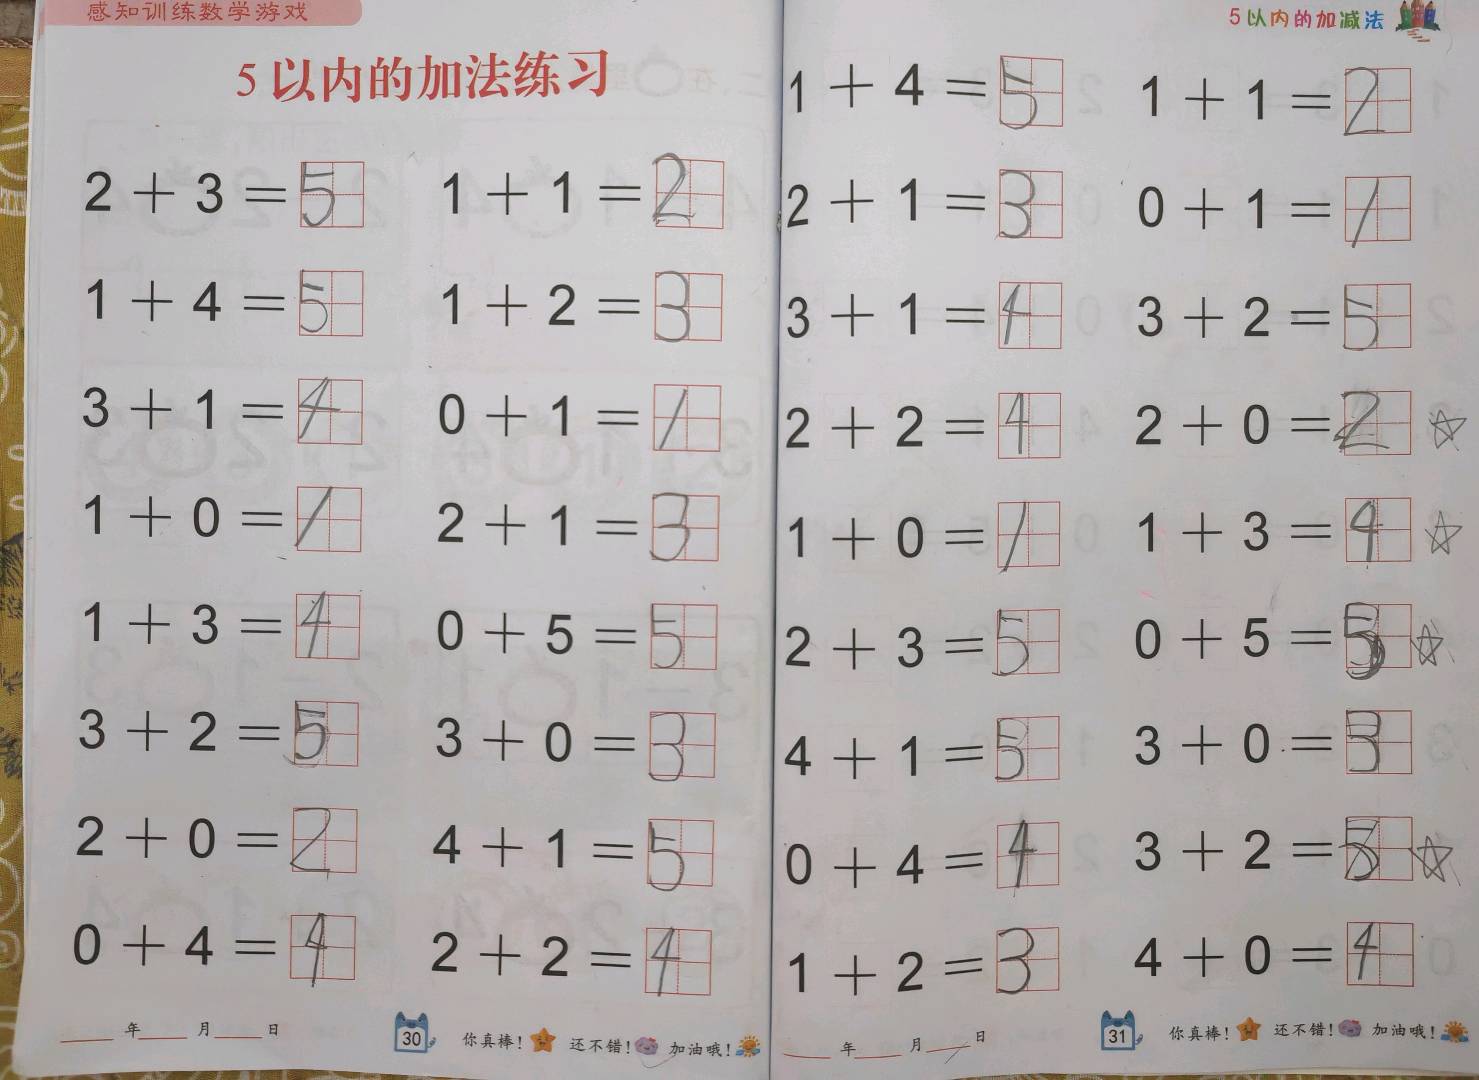 感知训练数学游戏
5 以内的加法练习
2 + 3 = 5
1 + 1 = 2
1 + 4 = 5
1 + 2 = 3
3 + 1 = 4
0 + 1 = 1
1 + 0 = 1
2 + 1 = 3
1 + 3 = 4
0 + 5 = 5
3 + 2 = 5
3 + 0 = 3
2 + 0 = 2
4 + 1 = 5
0 + 4 = 4
2 + 2 = 4
年 月 日
30
你真棒! 还不错! 加油哦!
5以内的加减法
1 + 4 = 5
1 + 1 = 2
2 + 1 = 3
0 + 1 = 1
3 + 1 = 4
3 + 2 = 5
2 + 2 = 4
2 + 0 = 2
1 + 0 = 1
1 + 3 = 4
2 + 3 = 5
0 + 5 = 5
4 + 1 = 5
3 + 0 = 3
0 + 4 = 4
3 + 2 = 5
1 + 2 = 3
4 + 0 = 4
年 月 日
31
你真棒! 还不错! 加油哦!